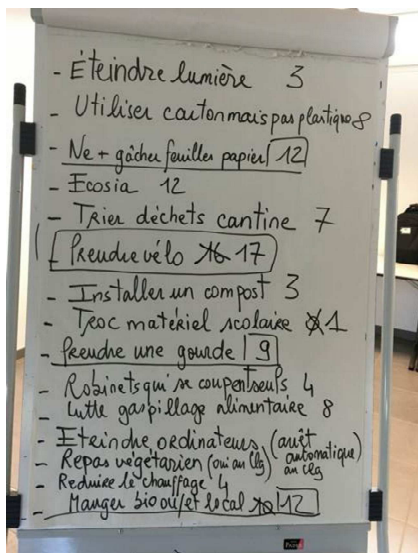 - Éteindre lumière 3
- Utiliser carton mais pas plastique 8
- Ne + gâcher feuilles papier 12
- Ecosia 12
- Trier déchets cantine 7
- Prendre vélo 17
- Installer un compost 3
- Troc matériel scolaire 1
- Prendre une gourde 9
- Robinets qui se coupent seuls 4
- Lutte gaspillage alimentaire 8
- Eteindre ordinateurs (arrêt automatique au clg)
- Repas végétarien (oui au clg)
- Reduire le chauffage 4
- Manger bio ou/et local 12